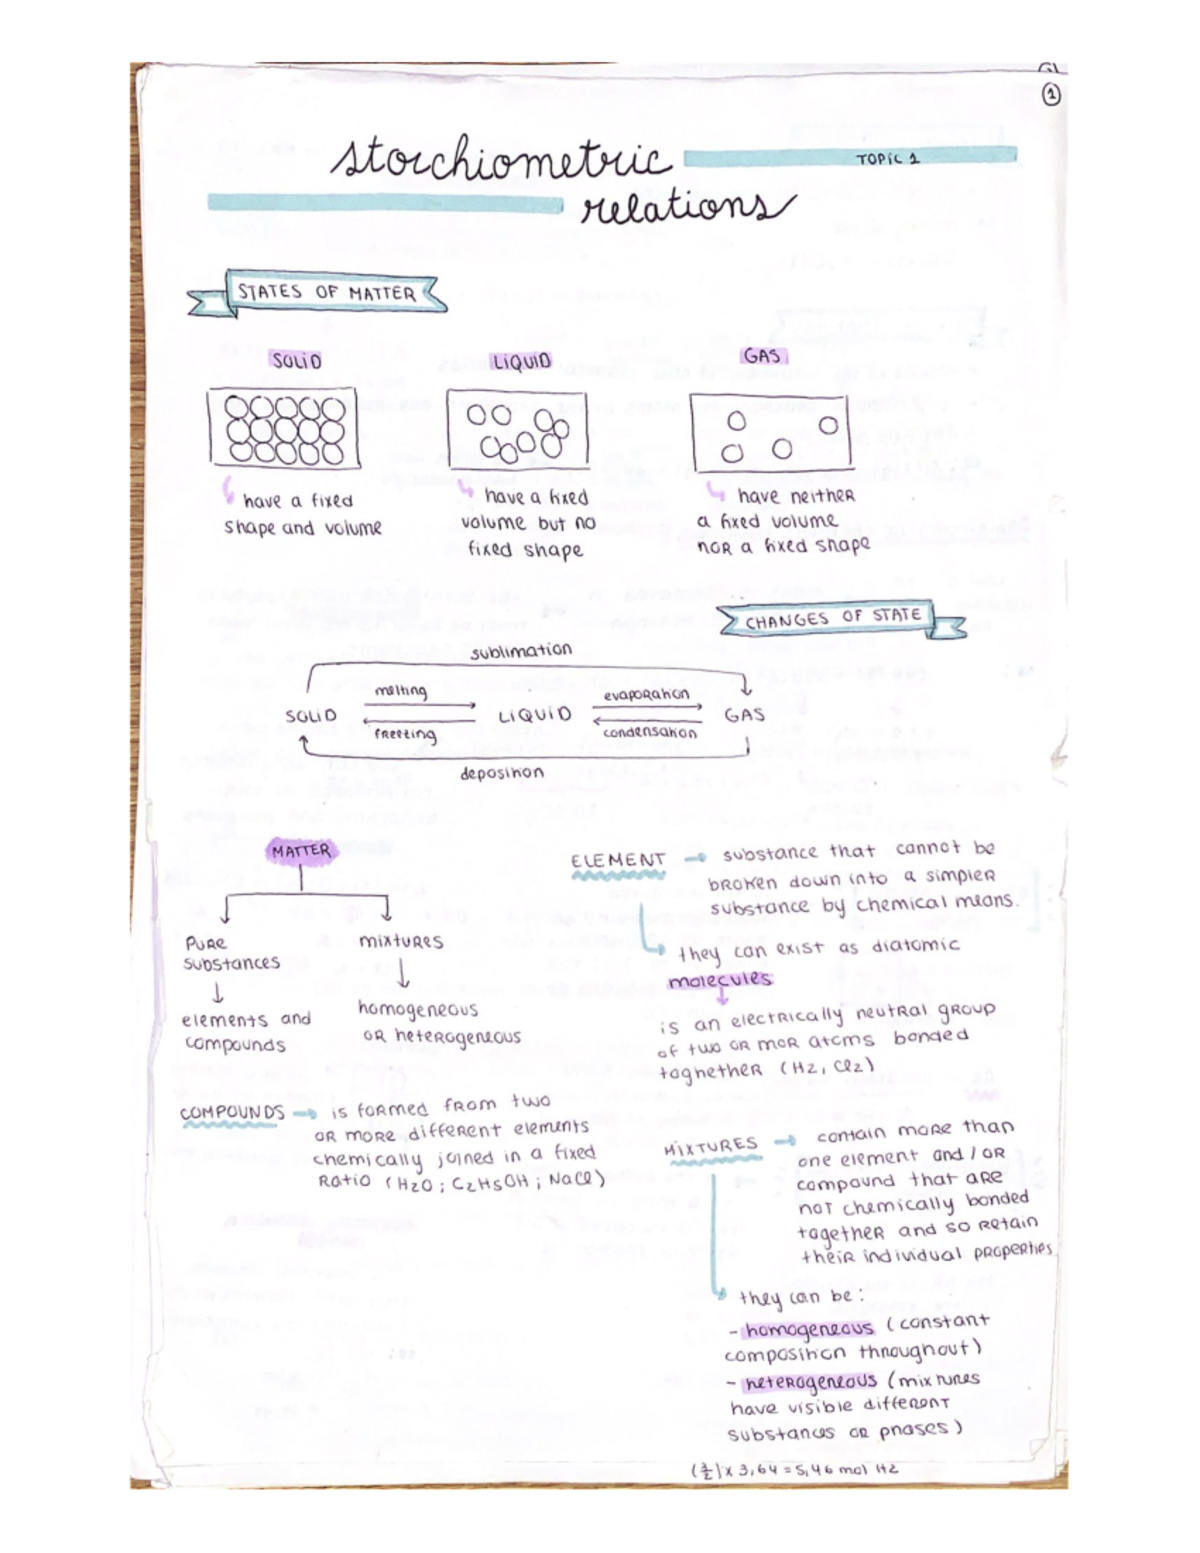 1
stoichiometric
TOPIC 1
relations
STATES OF MATTER
SOLID
LIQUID
GAS
have a fixed
shape and volume
have a fixed
volume but no
fixed shape
have neither
a fixed volume
nor a fixed shape
CHANGES OF STATE
sublimation
melting
evaporation
SOLID
LIQUID
GAS
freezing
condensation
deposition
MATTER
PURE
substances
mixtures
elements and
compounds
homogeneous
or heterogeneous
ELEMENT → substance that cannot be
broken down into a simpler
substance by chemical means.
they can exist as diatomic
molecules
is an electrically neutral group
of two or mor atoms bonded
toghether (H2, Cl2)
COMPOUNDS → is formed from two
or more different elements
chemically joined in a fixed
ratio (H2O; C2H5OH; NaCl)
MIXTURES → contain more than
one element and/or
compound that are
not chemically bonded
together and so retain
their individual properties
they can be:
- homogeneous (constant
composition throughout)
- heterogeneous (mixtures
have visible different
substances or phases)
(3/2) x 3,64 = 5,46 mol H2